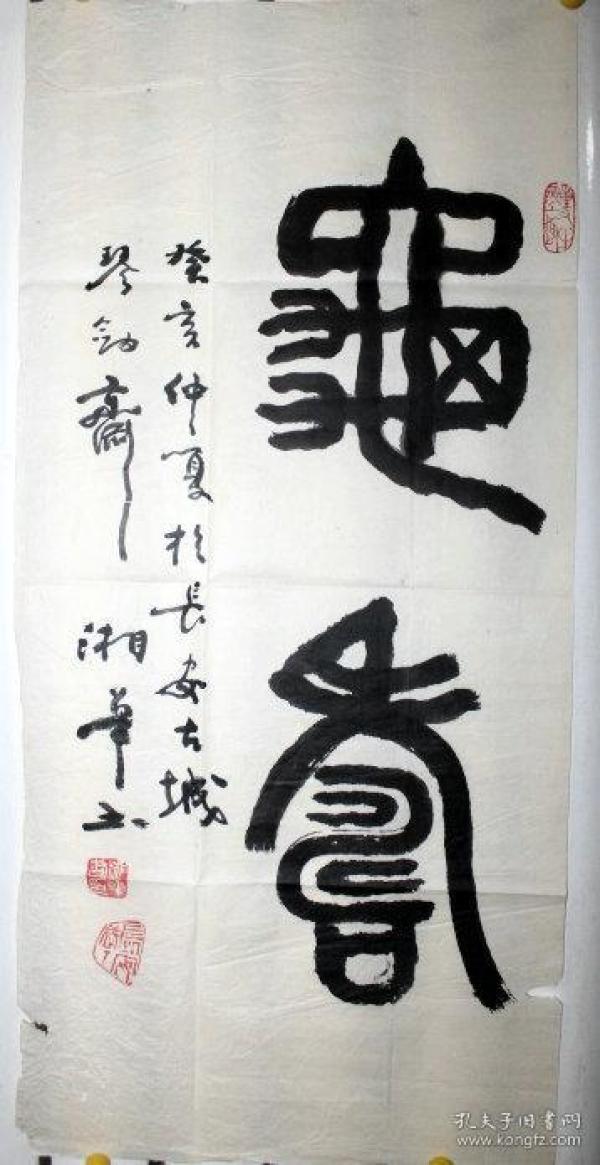 龜壽
癸亥仲夏於長安古城
琴劍齋
湘華书
孔夫子旧书网
www.kongfz.com